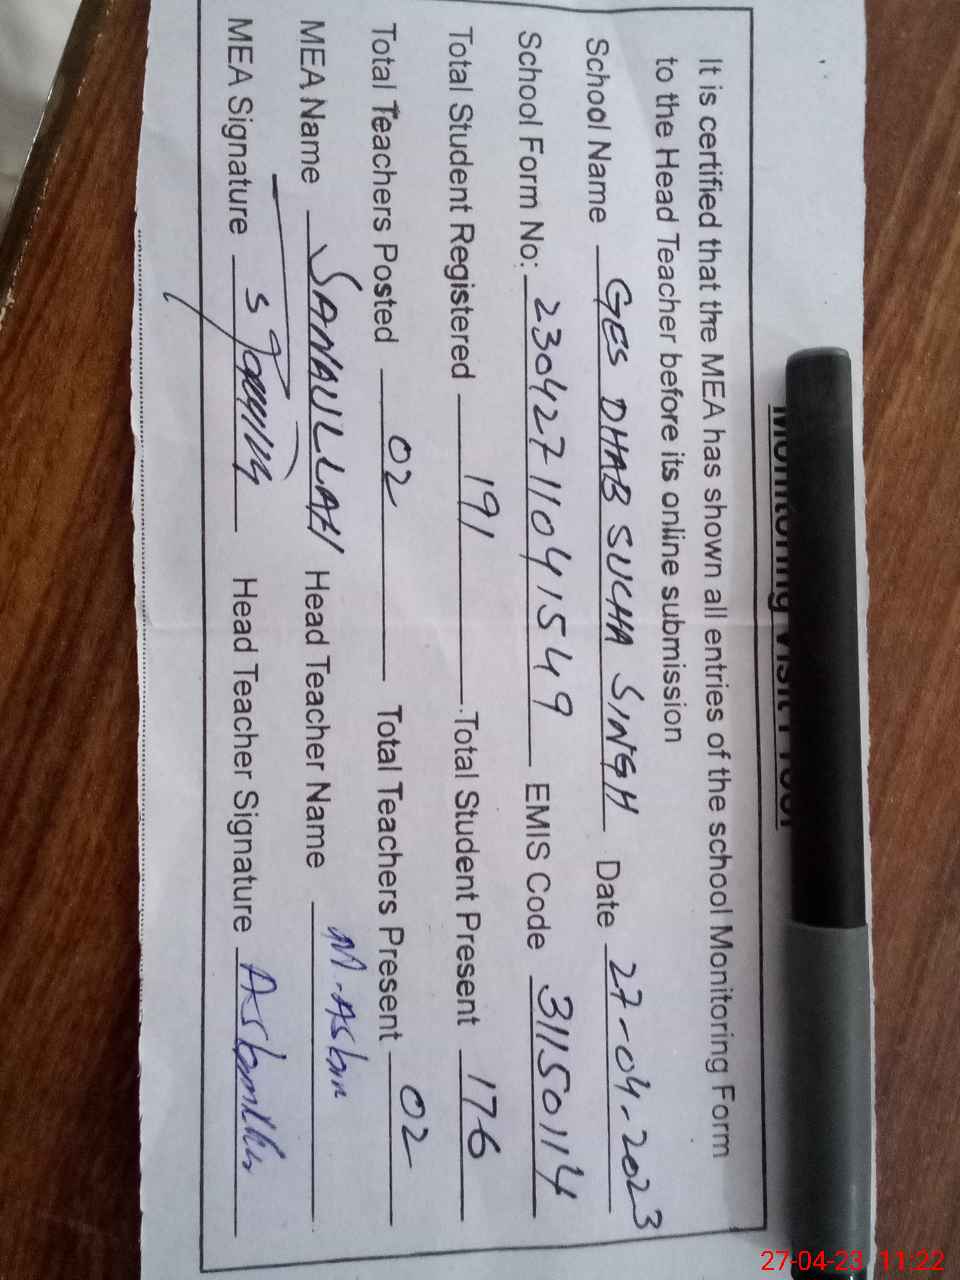 It is certified that the MEA has shown all entries of the school Monitoring Form
to the Head Teacher before its online submission
School Name GES DHAB SUCHA SINGH Date 27-04-2023
School Form No: 2304271104 1549 EMIS Code 31150114
Total Student Registered 191 Total Student Present 176
Total Teachers Posted 02 Total Teachers Present 02
MEA Name SANAULLAH Head Teacher Name
MEA Signature Head Teacher Signature
27-04-23 11:22